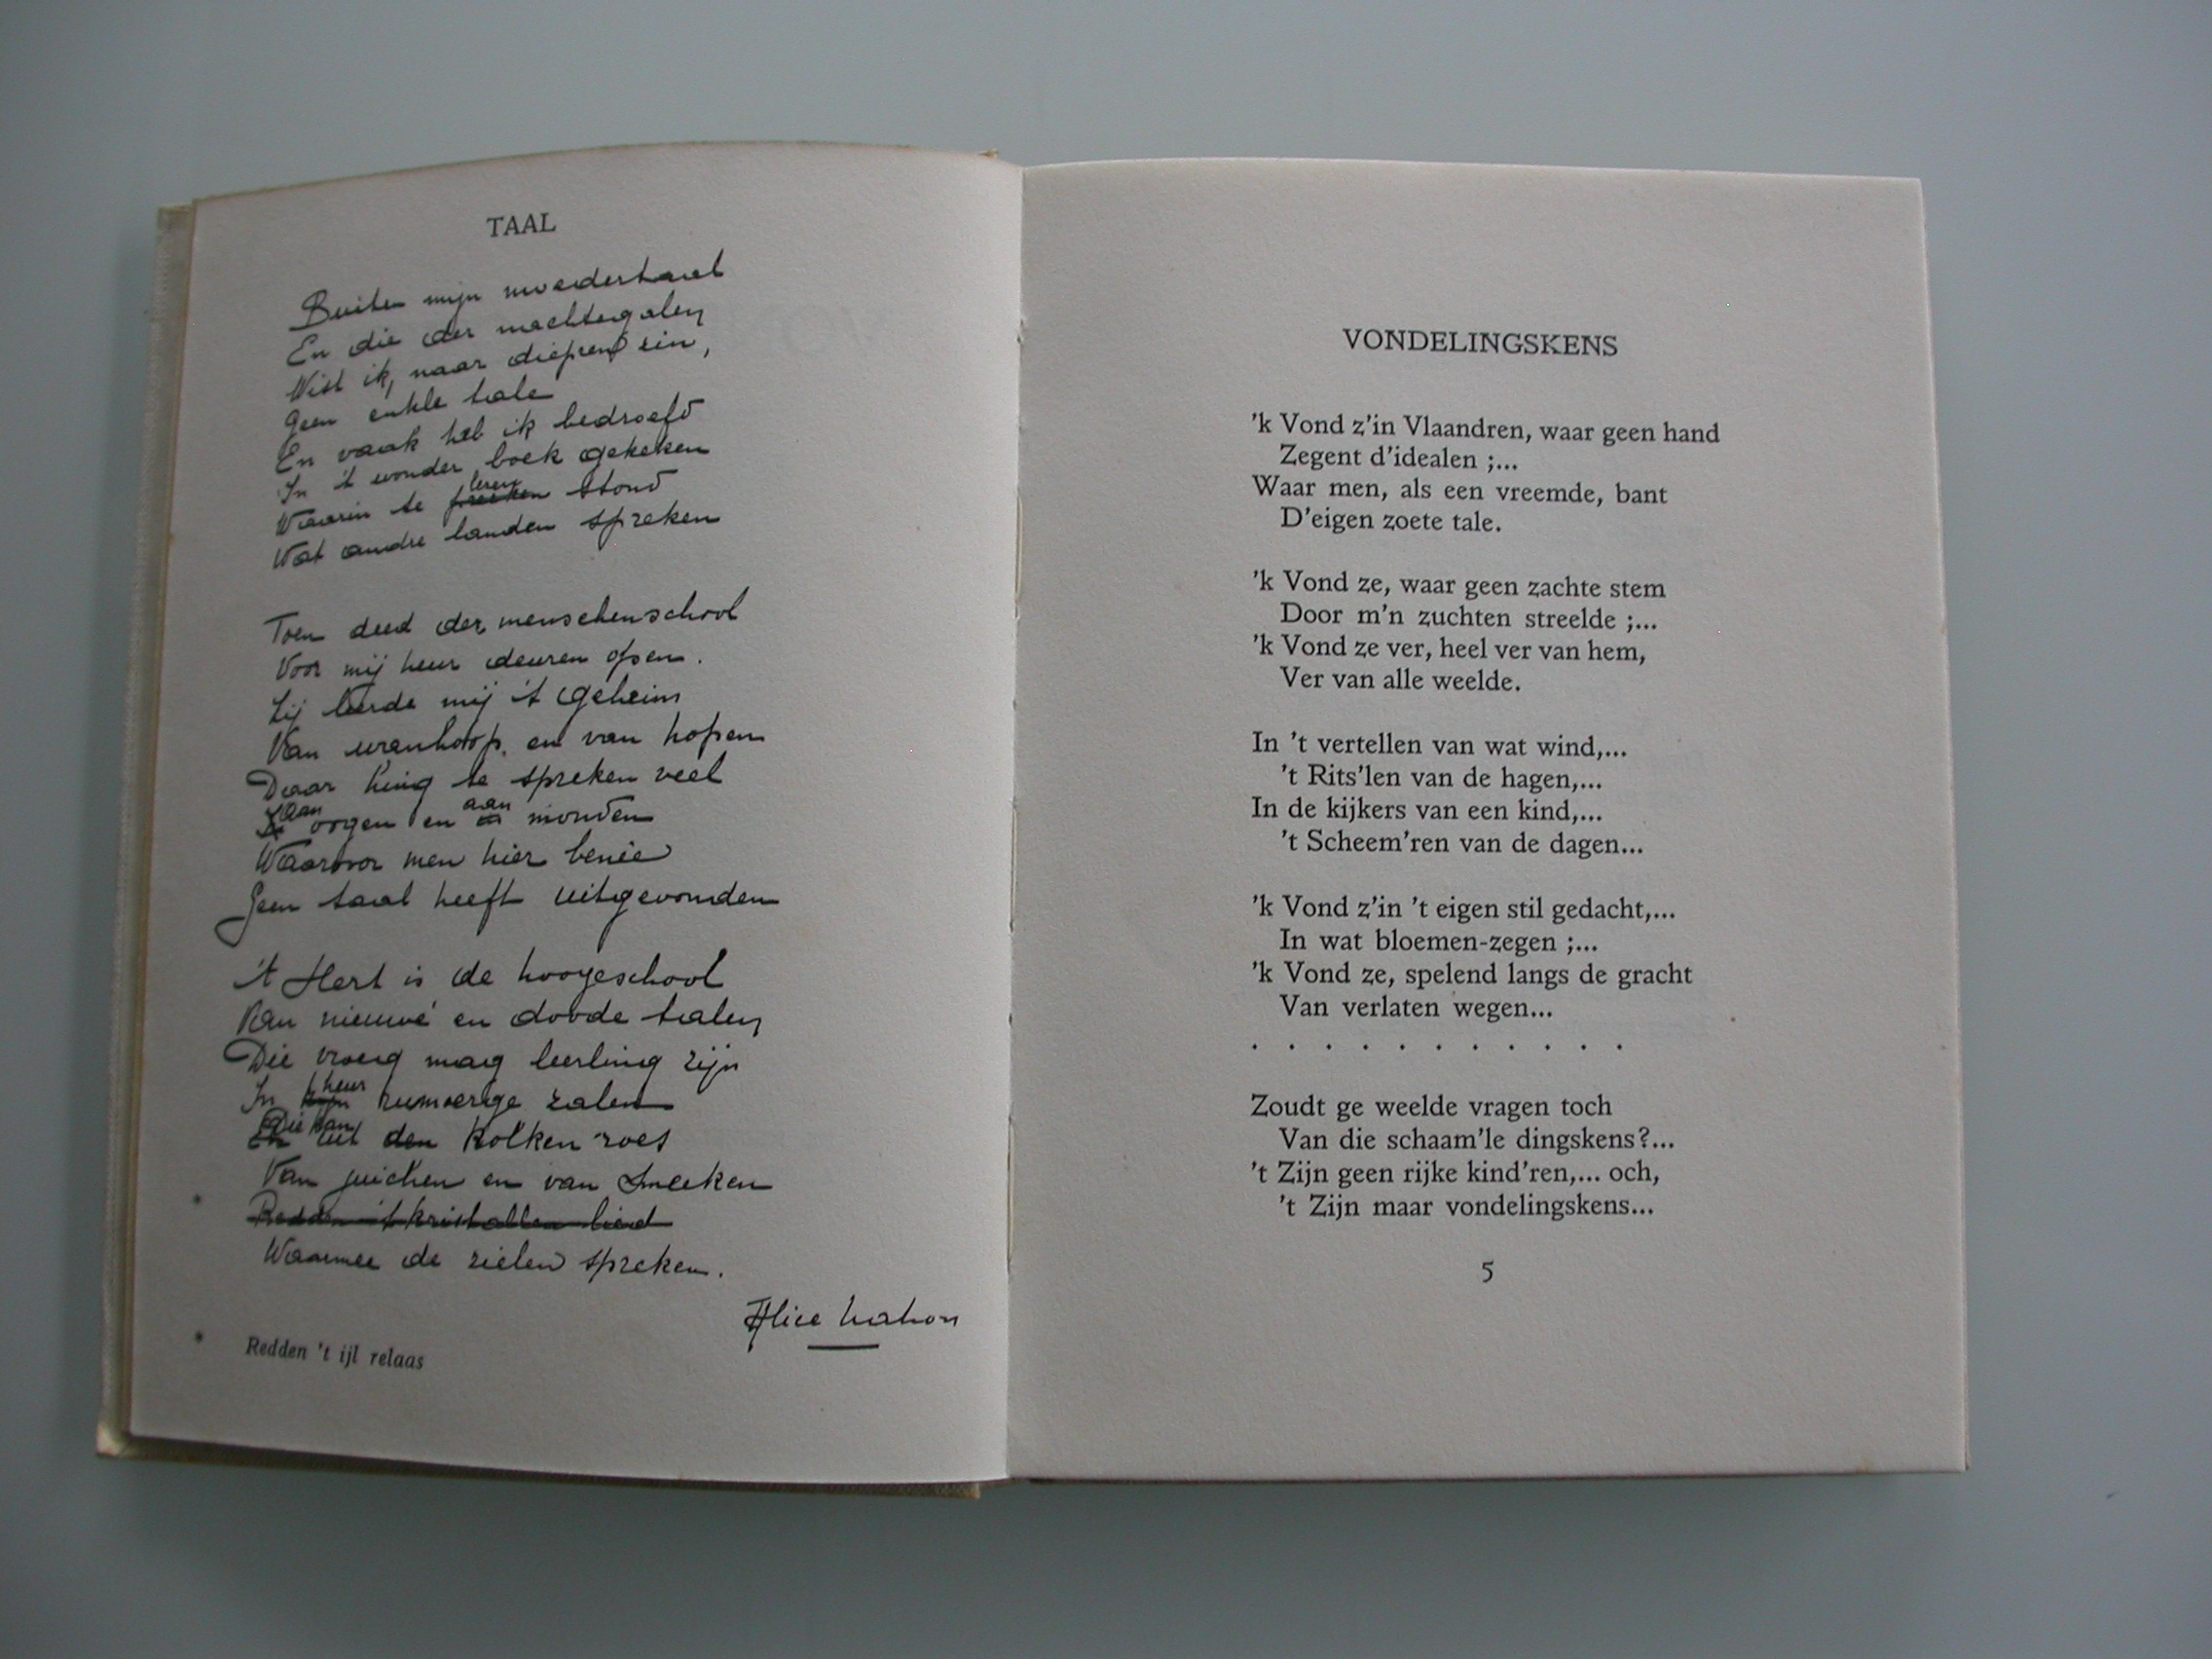 TAAL
Buiten mijn moedertaal
En die der nachtegalen
Wist ik, naar diepren zin,
Geen enkle tale
En vaak heb ik bedroefd
In 't wonder boek gekeken
Waarin te leren stond
Wat andre landen spreken
Toen deed der menschenschool
Voor mij heur deuren open.
Zij leerde mij 't geheim
Van wanhoop en van hopen
Daar hing te spreken veel
Aan oogen en aan monden
Waarvoor men hier benêe
Geen taal heeft uitgevonden
't Hert is de hoogeschool
Van nieuwe en doode talen
Die vroeg mag leerling zijn
In heur rumoerige zalen
Die kan uit den kolken roes
Van juichen en van smeeken
Redden 't kristallen lied
Waarmee de zielen spreken.
Alice Nahon
* Redden 't ijl relaas
VONDELINGSKENS
'k Vond z'in Vlaandren, waar geen hand
Zegent d'idealen ;...
Waar men, als een vreemde, bant
D'eigen zoete tale.
'k Vond ze, waar geen zachte stem
Door m'n zuchten streelde ;...
'k Vond ze ver, heel ver van hem,
Ver van alle weelde.
In 't vertellen van wat wind,...
't Rits'len van de hagen,...
In de kijkers van een kind,...
't Scheem'ren van de dagen...
'k Vond z'in 't eigen stil gedacht,...
In wat bloemen-zegen ;...
'k Vond ze, spelend langs de gracht
Van verlaten wegen...
. . . . . . . . . . .
Zoudt ge weelde vragen toch
Van die schaam'le dingskens?...
't Zijn geen rijke kind'ren,... och,
't Zijn maar vondelingskens...
5